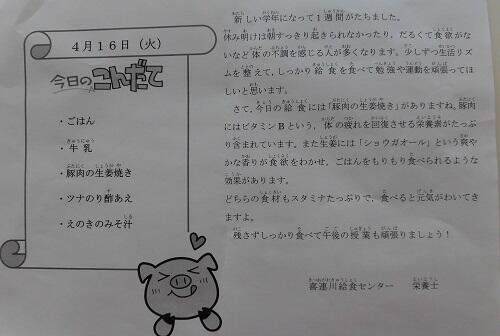 4月16日（火）
今日のこんだて
・ごはん
・牛乳
・豚肉の生姜焼き
・ツナのり酢あえ
・えのきのみそ汁
新しい学年になって１週間がたちました。
休み明けは朝すっきり起きられなかったり、だるくて食欲がな
いなど体の不調を感じる人が多くなります。少しずつ生活リズ
ムを整えて、しっかり給食を食べて勉強や運動を頑張ってほ
しいと思います。
さて、今日の給食には「豚肉の生姜焼き」がありますね。豚肉
にはビタミンＢという、体の疲れを回復させる栄養素がたっぷ
り含まれています。また生姜には「ショウガオール」という爽や
かな香りが食欲をわかせ、ごはんをもりもり食べられるような
効果があります。
どちらの食材もスタミナたっぷりで、食べると元気がわいてき
ますよ。
残さずしっかり食べて午後の授業も頑張りましょう！
喜連川給食センター　栄養士